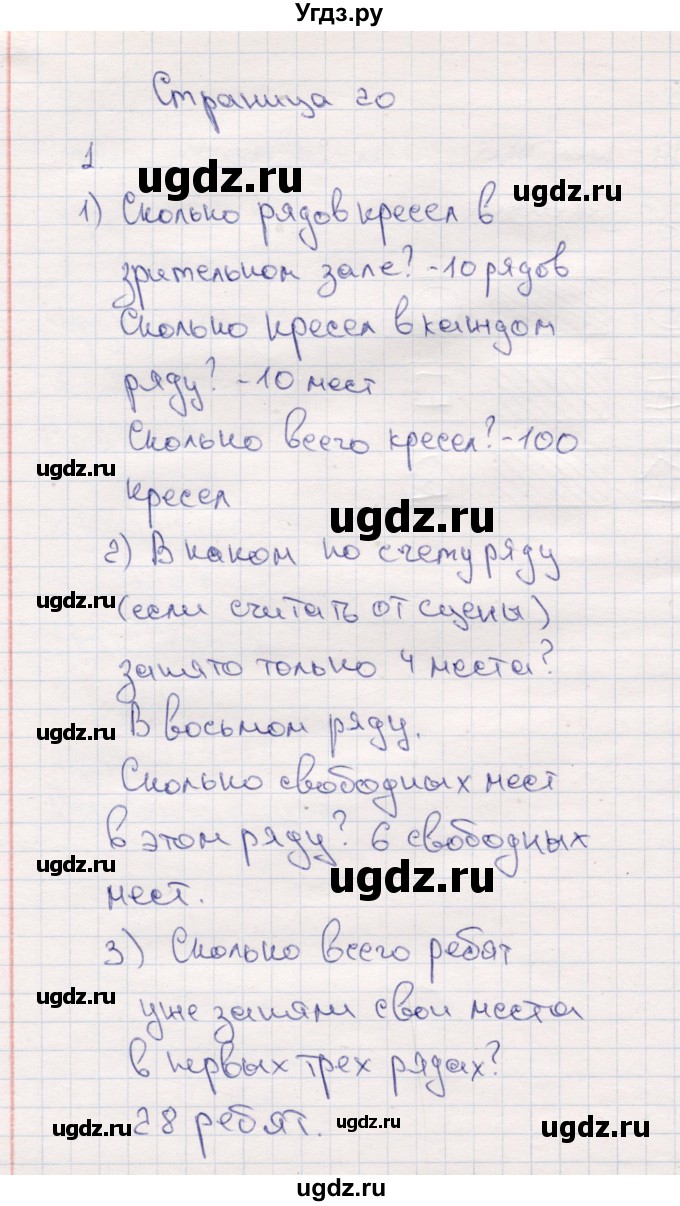 Угдз.ру
Страница 20
1
ugdz.ru ugdz.ru
1) Сколько рядов кресел в
зрительном зале? -10 рядов
Сколько кресел в каждом
ряду? -10 мест
Сколько всего кресел? -100
ugdz.ru
кресел
ugdz.ru
2) В каком по счету ряду
ugdz.ru
(если считать от сцены)
занято только 4 места?
В восьмом ряду.
ugdz.ru
Сколько свободных мест
в этом ряду? 6 свободных
ugdz.ru ugdz.ru
мест.
3) Сколько всего ребят
ugdz.ru
уже заняли свои места
в первых трех рядах?
28 ребят.
ugdz.ru ugdz.ru ugdz.ru
ugdz.ru